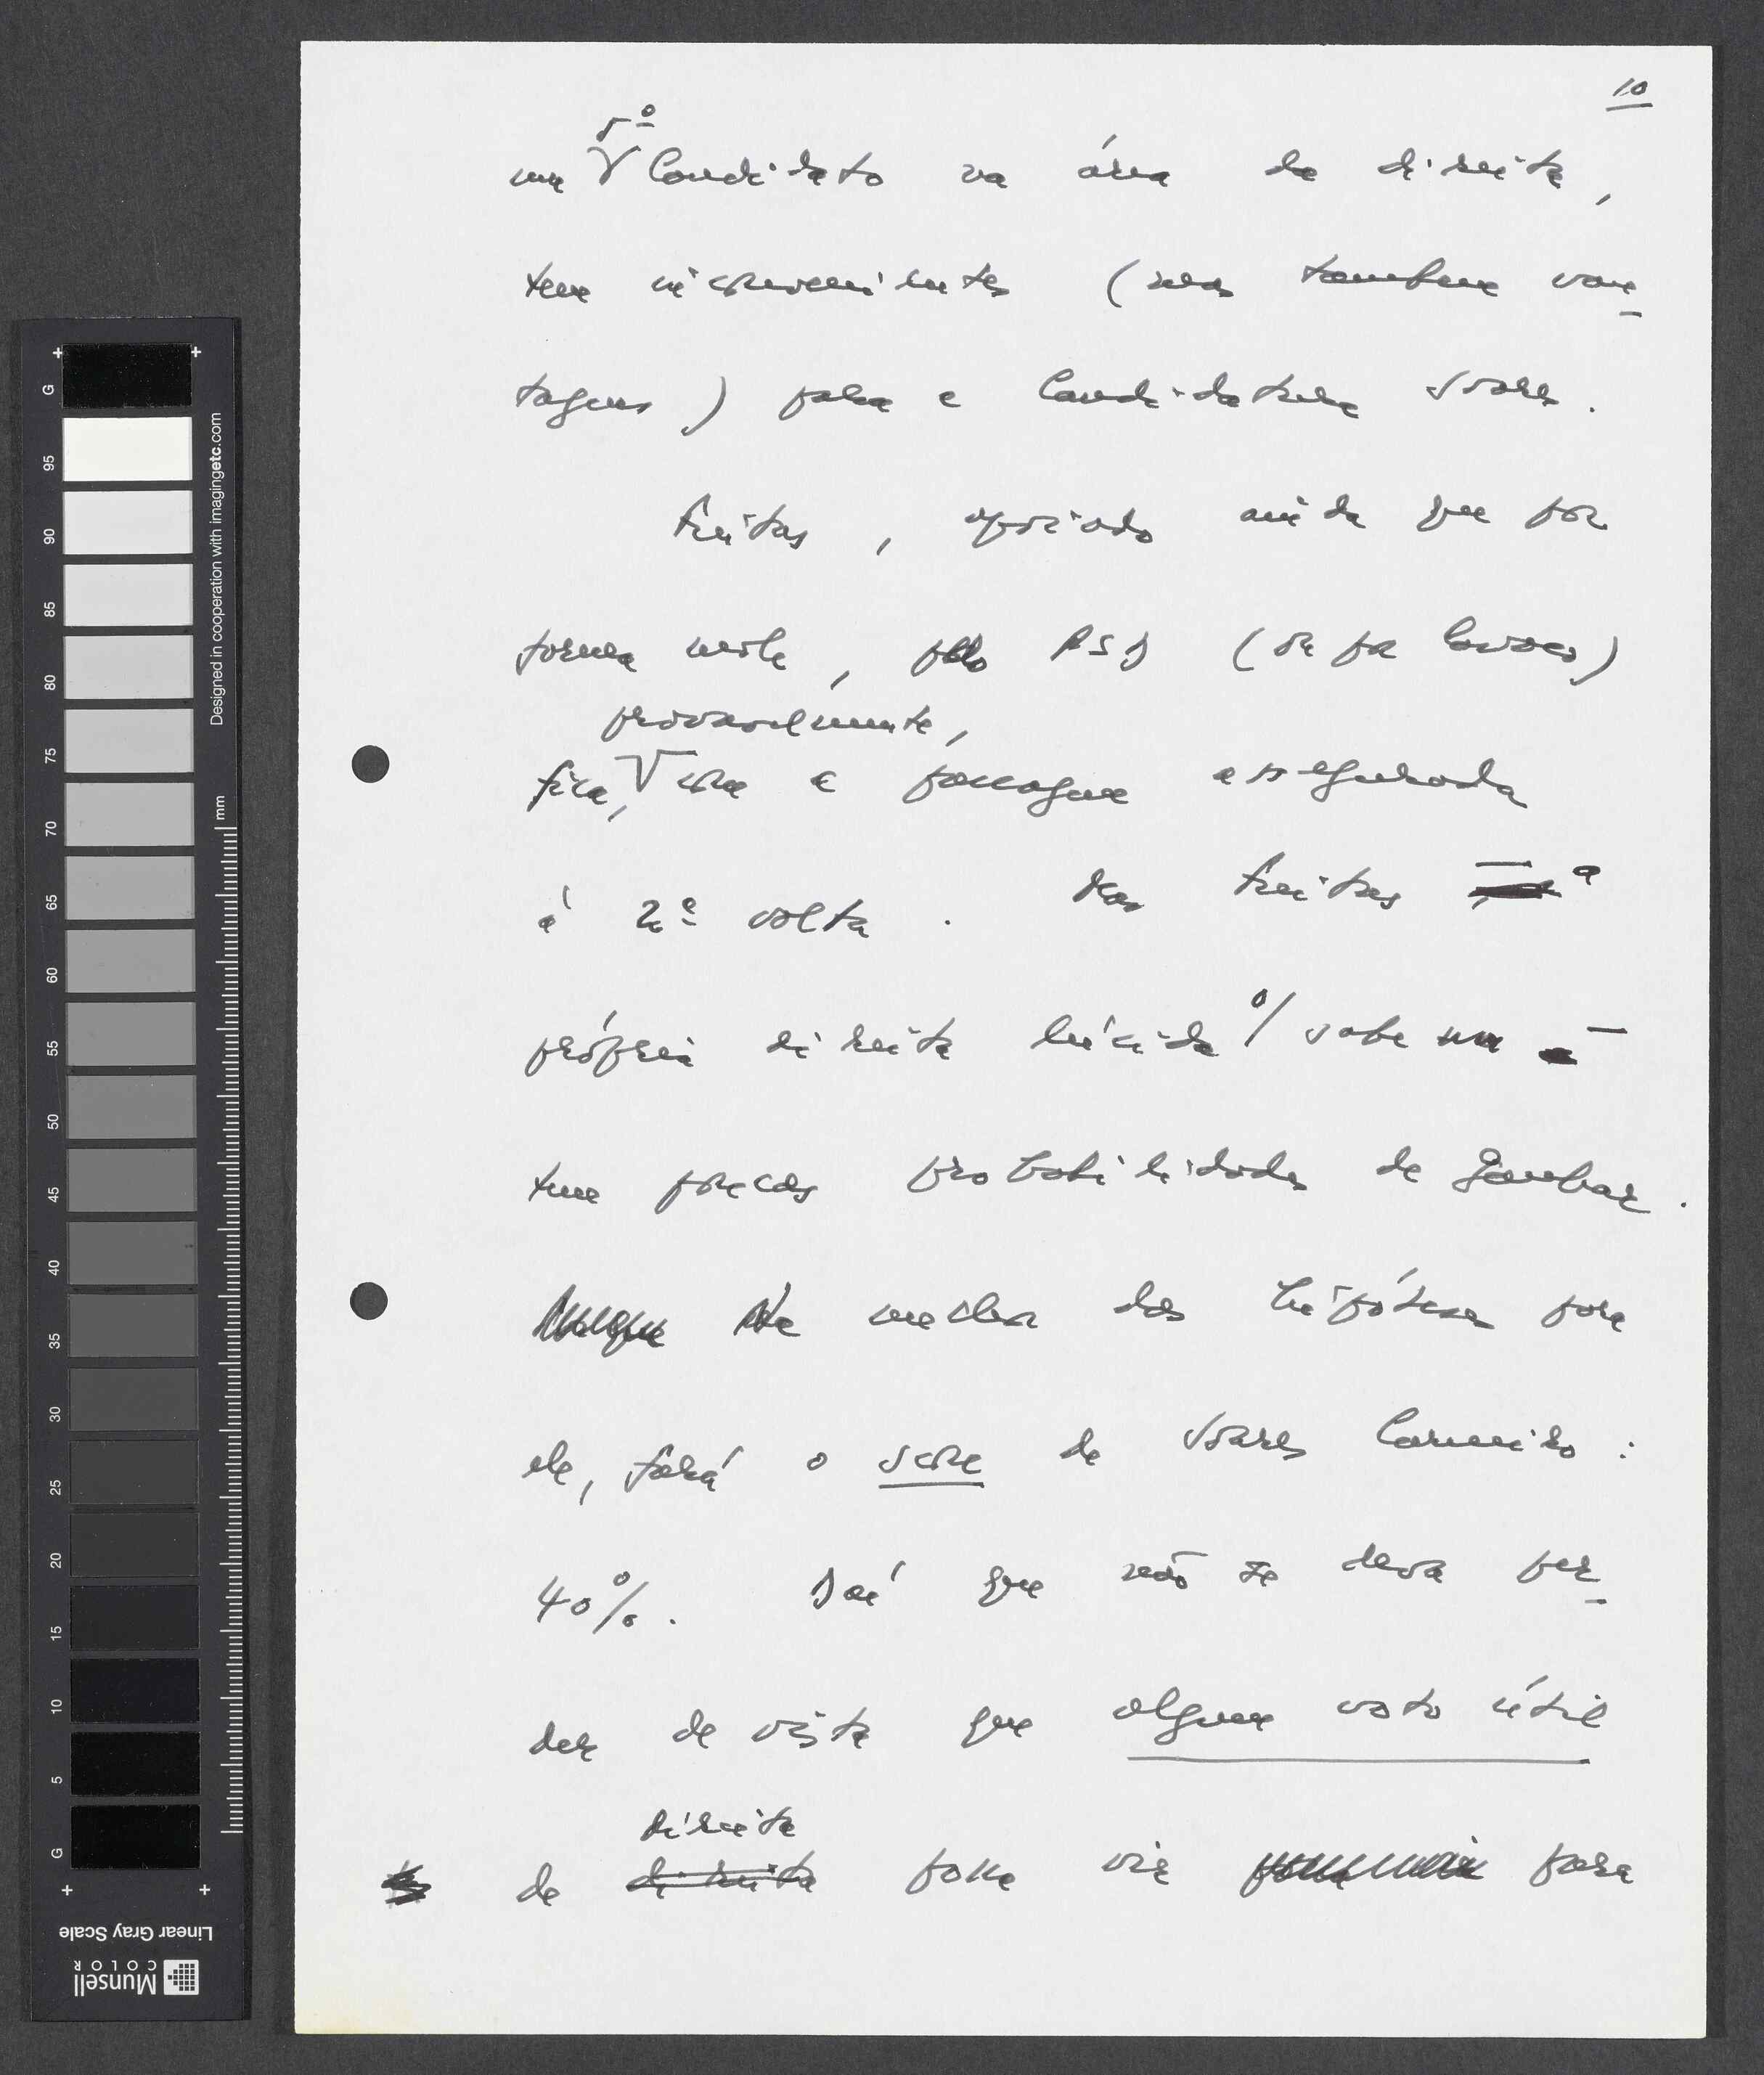 10
5º
um candidato na área da direita,
tem inconvenientes (mas tambem van-
tagens) para a Candidatura Soares.
Freitas, apoiado ainda que por
forma mole, pelo PSD (de Cavaco)
provavelmente,
fica, com a passagem assegurada
à 2ª volta. Mas Freitas a
própria direita lúcida o sabe
tem poucas probabilidades de ganhar.
Na melhor das hipóteses para
ele, fará o score de Soares Carneiro:
40%. Daí que não se deva per-
der de vista que algum voto útil
direita
de direita possa vir para
G
95
90
85
80
75
70
65
60
55
50
45
40
35
30
25
20
15
10
5
G
mm
Designed in cooperation with imagingetc.com
Linear Gray Scale
Munsell
COLOR